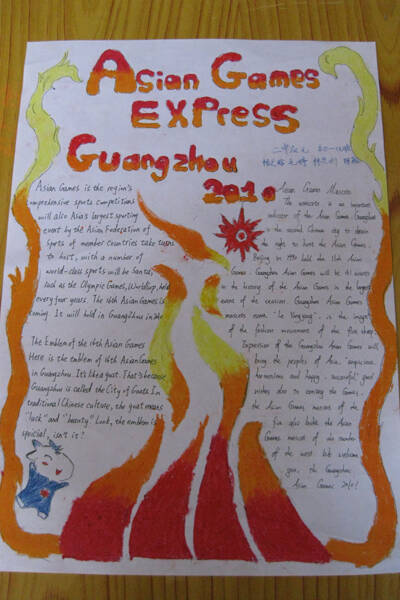 Asian Games
EXPress
Guangzhou
2010
Asian Games is the region's
comprehensive sports competitions
will also Asia's largest sporting
event by the Asian Federation of
Sports of member countries take turns
to host, with a number of
world-class sports will be
such as the Olympic Games, held
every four years. The 16th Asian Games is
coming. It will hold in Guangzhou in
The Emblem of the 16th Asian Games
Here is the emblem of 16th Asian Games
in Guangzhou. It's like a goat. That's because
Guangzhou is called the City of Goats. In
traditional Chinese culture, the goat means
"luck" and "beauty". Look, the emblem is
special, isn't it?
Asian Games Mascots
The mascots is an important
indicator of the Asian Games. Guangzhou
is the second Chinese city to obtain
the right to host the Asian Games.
Beijing in 1990 held the 11th Asian
Games. Guangzhou Asian Games will be
in the history of the Asian Games in the largest
one of the Guangzhou Asian Games
mascots name "Le Yangyang", is the image
of the fashion movement of the five sheep.
Expression of the Guangzhou Asian Games will
bring the people of Asia, "auspicious,
harmonious and happy, successful" good
wishes also to coming the Games.
the Asian Games mascots of the
five also better the Asian
Games mascots of the number
of the most. We welcome
you, the Guangzhou
Asian Games 2010!